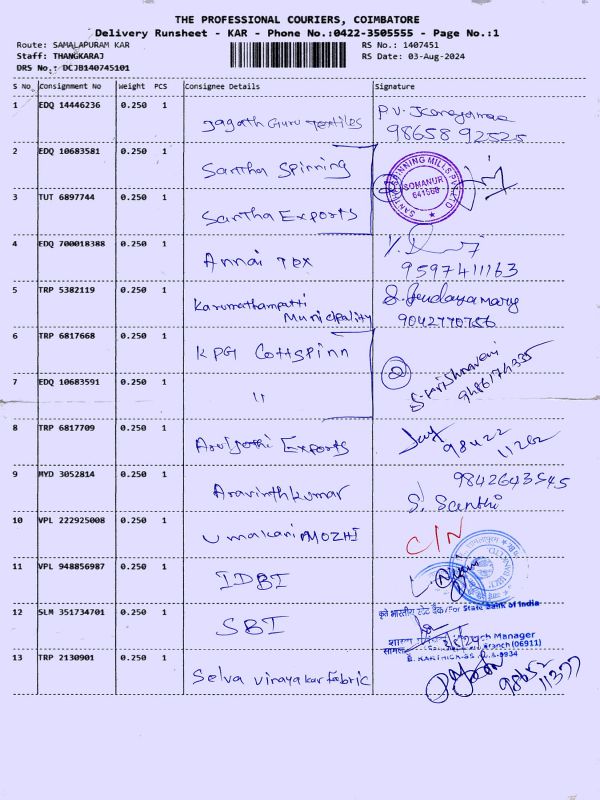 THE PROFESSIONAL COURIERS, COIMBATORE
Delivery Runsheet - KAR - Phone No.:0422-3505555 - Page No.:1
Route: SAMALAPURAM KAR RS No.: 1407451
Staff: THANGKARAJ RS Date: 03-Aug-2024
DRS No.: DCJB140745101
S No Consignment No Weight PCS Consignee Details Signature
1 EDQ 14446236 0.250 1 Jagath Guru Textiles P.V.
98658 92525
2 EDQ 10683581 0.250 1 Santha Spinning
SOMANUR
641568
3 TUT 6897744 0.250 1 Santha Exports
4 EDQ 700018388 0.250 1 Annai Tex
9597411163
5 TRP 5382119 0.250 1 Karumathampatti Municipality
9042770756
6 TRP 6817668 0.250 1 KPG Cottspinn
2
7 EDQ 10683591 0.250 1 "
8 TRP 6817709 0.250 1 Aruljothi Exports
98422 11262
9 MYD 3052814 0.250 1 Aravinthkumar 9842643545
S. Santhi
10 VPL 222925008 0.250 1 Umakani MOZHI C/N
11 VPL 948856987 0.250 1 IDBI
12 SLM 351734701 0.250 1 SBI
कृते भारतीय स्टेट बैंक/For State Bank of India
Branch Manager
Branch (06911)
13 TRP 2130901 0.250 1 Selva Vinayakar Fabric
98652 11377